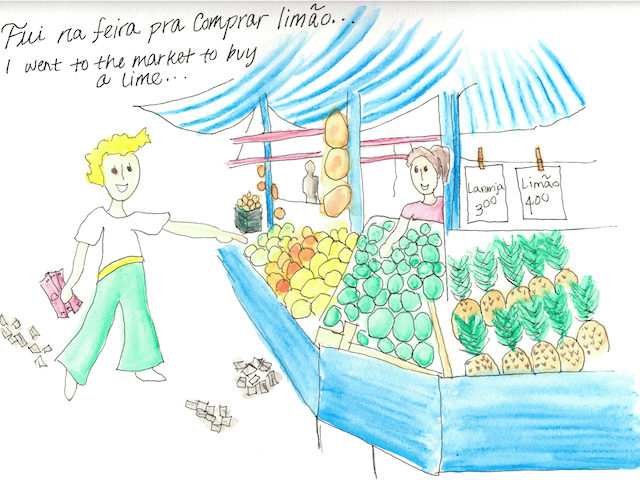 Fui na feira pra comprar limão...
I went to the market to buy
a lime...
Laranja
300
Limão
400